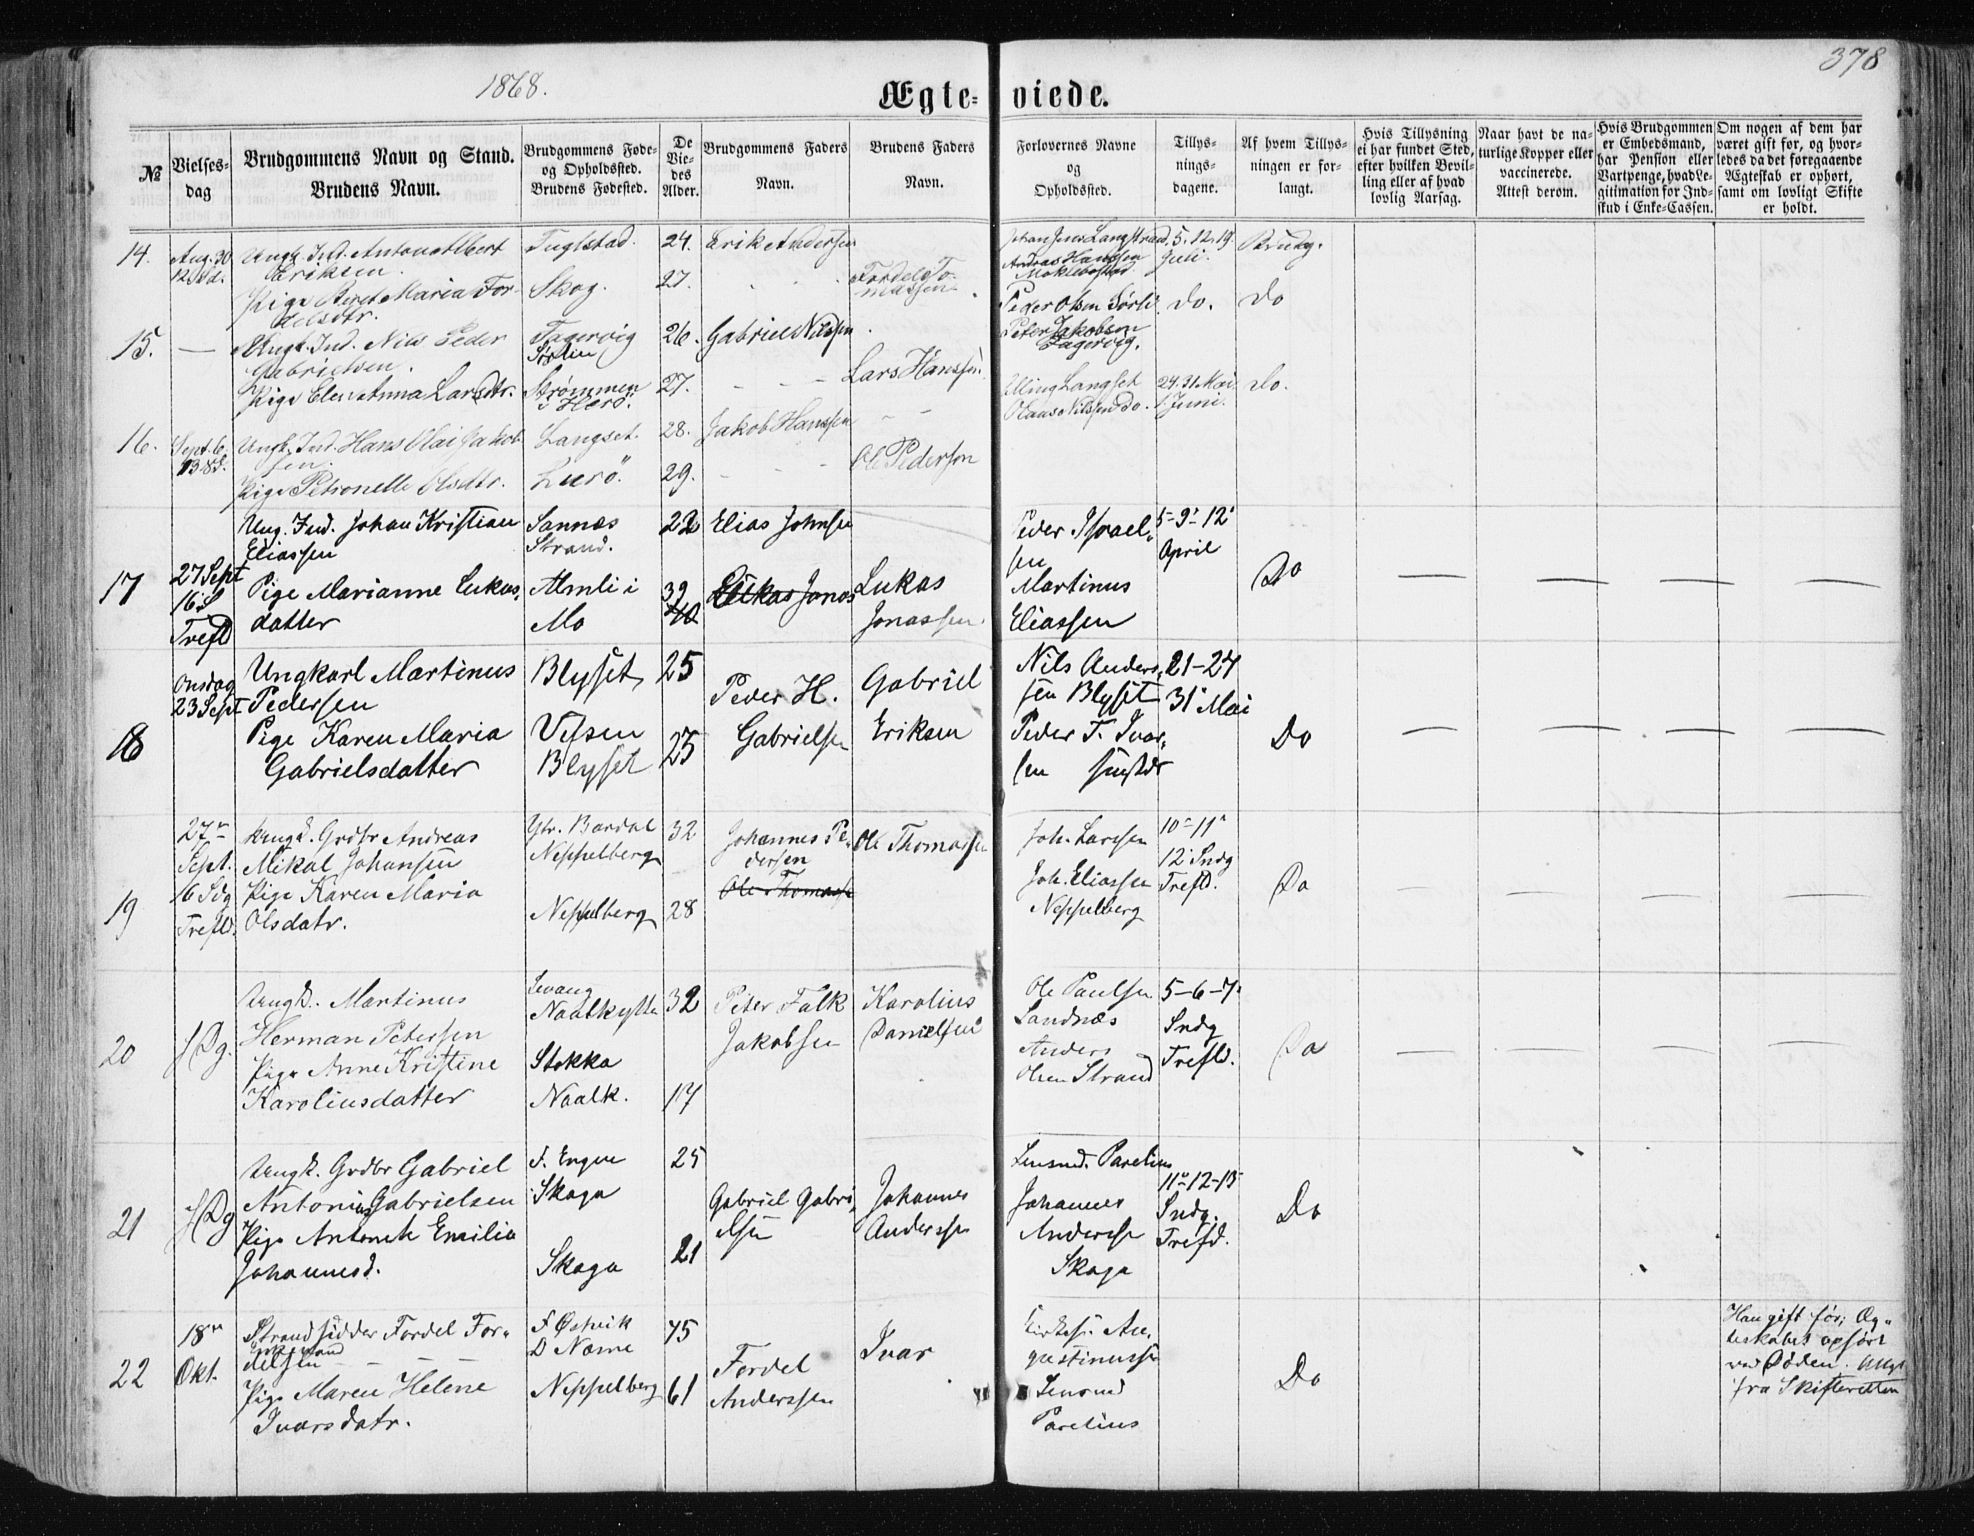 1868.
378
Ægte-viede.
№
Vielses-
dag
Brudgommens Navn og Stand.
Brudens Navn.
Brudgommens Føde-
og Opholdssted.
Brudens Fødested.
De
Vie-
des
Alder.
Brudgommens Faders
Navn.
Brudens Faders
Navn.
Forlovernes Navne
og
Opholdssted.
Tillys-
nings-
dagene.
Af hvem Tillys-
ningen er for-
langt.
Hvis Tillysning
ei har fundet Sted,
efter hvilken Bevil-
ling eller af hvad
lovlig Aarsag.
Naar havt de na-
turlige Kopper eller
vaccinerede.
Attest derom.
Hvis Brudgommen
er Embedsmand,
har Pension eller
Vartpenge, hvad Le-
gitimation for Ind-
skud i Enke-Cassen.
Om nogen af dem har
været gift før, og hvor-
ledes da det foregaaende
Ægteskab er ophørt,
samt om lovligt Skifte
er holdt.
14.
Aug. 30
12 Sd.
Ungk. Ind. Anton Albert
Eriksen.
Pige Beret Maria For-
delsdtr.
Fuglstad.
Skog.
24.
27.
Erik Andersen
Fordel To-
massen.
Johan Jens Langstrand
Andreas Hanssen
Moklebostad
5. 12. 19
Juli.
Brudg.
15.
—
Ungk. Ind. Nils Peder
Gabrielsen.
Pige Elen Anna Larsdtr.
Fagervig
Sørlin
Strømmen
i Herø.
26.
27.
Gabriel Nilssen
Lars Hanssen
Peder Olsen Sørli
Peter Jakobsen
Fagervig.
Do.
Do
16.
Sept. 6
13 Sd.
Ungk. Ind. Hans Olai Jakob-
sen.
Pige Petronelle Olsdtr.
Langset.
Lurö.
28.
29.
Jakob Hanssen
Ole Pedersen
Elling Langset
Olaus Nilsen do.
24. 31 Mai
1. Juni.
Do.
17
27 Sept
16 S
Trefd
Ung. Ind. Johan Kristian
Eliassen
Pige Marianne Lukas-
datter
Sannæs
Strand.
Almli i
Mo
22
39
40
Elias Johnsen
Lukas Jonas
Lukas
Jonassen.
Peder Israel-
sen
Martinus
Eliassen
5-9-12
April
Do
18
Onsdag
23 Sept
Ungkarl Martinus
Pedersen
Pige Karen Maria
Gabrielsdatter
Blyset
Vefsen
Blyset
25
25
Peder H.
Gabrielsen
Gabriel
Eriksen
Nils Anders-
sen Blyset
Peder T. Ivar-
sen
21-24
31 Mai
Do
19
27
Sept.
16 Sdg
Trefd.
Ungk. Grdbr Andreas
Mikal Johansen
Pige Karen Maria
Olsdatr.
Ytr. Bardal
Neppelberg
Neppelberg
32
28
Johannes Pe-
dersen
Ole Thomass
Ole Thomassen
Joh. Larssen
Joh. Eliassen
Neppelberg
10-11
12 Sndg
Trefd.
Do
20
Ungk. Martinus
Herman Petersen
Pige Anne Kristine
Karoliusdatter
Levang
Naalkytte
Stokka
Naalk.
32
17
Peter Falk
Jakobsen
Karolius
Danielsen
Ole Paulsen
Sandnæs
Anders
Olsen Strand
5-6-7
Sndg
Trefd.
Do
21
Ungk. Grdbr Gabriel
Antonius Gabrielsen
Pige Antonete Emilie
Johannesd.
F. Engen
Skaga
Skaga
25
21
Gabriel Gabri-
elsen
Johannes
Anderssen
Lensmd. Parelius
Johannes
Anderssen
Skaga
11-12-13
Sndg.
Trefd.
Do
22
18
Okt.
Strandsidder Fordel For-
delsen
Enkemand
Pige Maren Helene
Ivarsdatr.
F Østvik
D Næsne
Neppelberg
75
61
Fordel
Anderssen
Ivar
Au-
gustinussen
Lensmd
Parelius
Do
Han gift før; Æg-
teskabet ophørt
ved Døden. Attest
fra Skifteretten